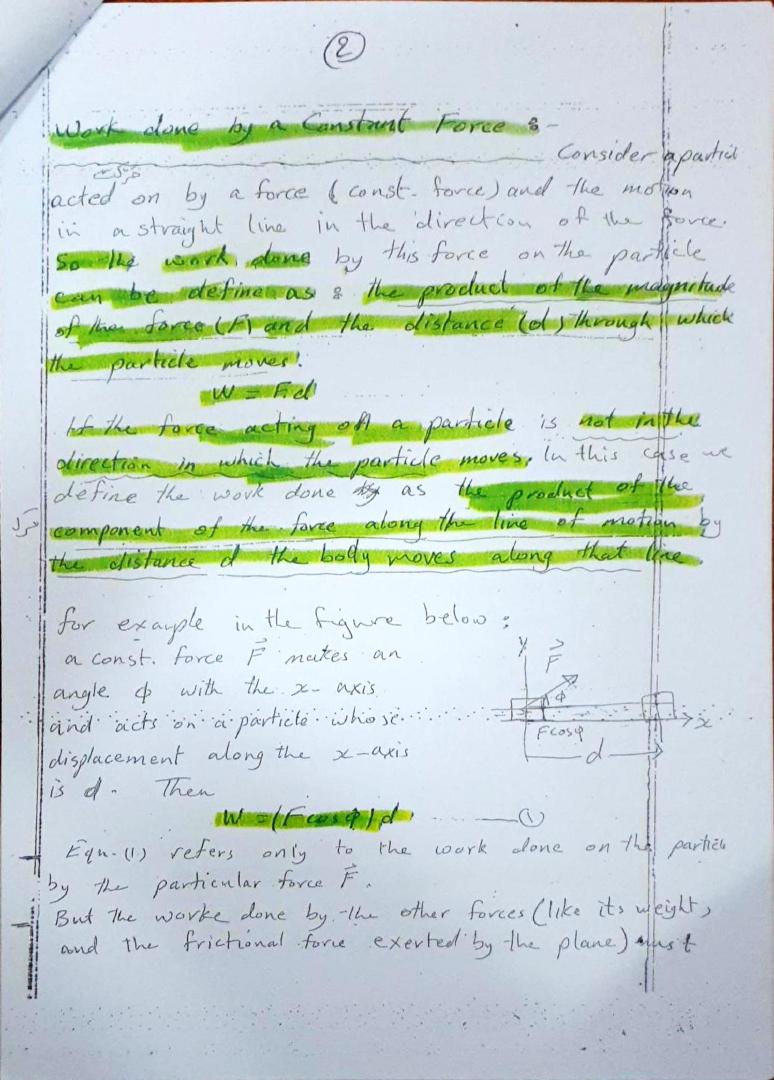 2
Work done by a Constant Force :-
Consider a particl
acted on by a force (const. force) and the motion
in a straight line in the direction of the force.
So the work done by this force on the particle
can be define as : the product of the magnitude
of the force (F) and the distance (d) through which
the particle moves.
W = F.d
If the force acting on a particle is not in the
direction in which the particle moves. In this case we
define the work done as the product of the
component of the force along the line of motion by
the distance d the body moves along that line.
for example in the figure below:
a const. force F⃗ makes an
angle ϕ with the x-axis
and acts on a particle whose
displacement along the x-axis
is d. Then
y
F⃗
ϕ
x
F cosϕ
d
W = (F cosϕ) d ......—(1)
Eqn. (1) refers only to the work done on the particle
by the particular force F⃗.
But the worke done by the other forces (like its weight,
and the frictional force exerted by the plane) must